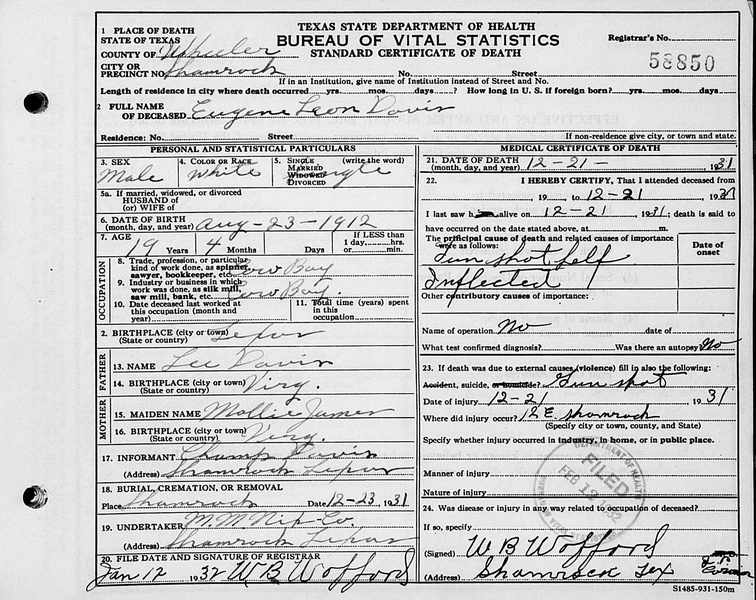 TEXAS STATE DEPARTMENT OF HEALTH
BUREAU OF VITAL STATISTICS
STANDARD CERTIFICATE OF DEATH
Registrar's No.
58850
1 PLACE OF DEATH
STATE OF TEXAS
COUNTY OF Wheeler
CITY OR
PRECINCT NO. Shamrock No. Street
If in an Institution, give name of Institution instead of Street and No.
Length of residence in city where death occurred yrs. mos. days? How long in U. S. if foreign born? yrs. mos. days
2 FULL NAME
OF DECEASED Eugene Leon Davis
Residence: No. Street If non-residence give city, or town and state.
PERSONAL AND STATISTICAL PARTICULARS
3. SEX
Male
4. COLOR OR RACE
White
5. SINGLE (write the word)
MARRIED
WIDOWED
DIVORCED
Single
5a. If married, widowed, or divorced
HUSBAND of
(or) WIFE of
6. DATE OF BIRTH
(month, day, and year) Aug-23-1912
7. AGE
19 Years 4 Months Days
If LESS than
1 day, hrs.
or min.
OCCUPATION
8. Trade, profession, or particular
kind of work done, as spinner,
sawyer, bookkeeper, etc. Cow Boy
9. Industry or business in which
work was done, as silk mill,
saw mill, bank, etc. Cow Boy.
10. Date deceased last worked at
this occupation (month and
year)
11. Total time (years) spent
in this
occupation
2. BIRTHPLACE (city or town)
(State or country) Texas
FATHER
13. NAME Lee Davis
14. BIRTHPLACE (city or town)
(State or country) Virg.
MOTHER
15. MAIDEN NAME Mollie James
16. BIRTHPLACE (city or town)
(State or country) Virg.
17. INFORMANT Champ Davis
(Address) Shamrock Texas
18. BURIAL, CREMATION, OR REMOVAL
Place Shamrock Date 12-23, 1931
19. UNDERTAKER
(Address) Shamrock Texas
20. FILE DATE AND SIGNATURE OF REGISTRAR
Jan 12 1932 W B Wofford
MEDICAL CERTIFICATE OF DEATH
21. DATE OF DEATH
(month, day, and year) 12-21- 1931
22. I HEREBY CERTIFY, That I attended deceased from
, 19 , to 12-21 , 1931
I last saw h alive on 12-21 , 1931; death is said to
have occurred on the date stated above, at m.
The principal cause of death and related causes of importance
were as follows:
Date of
onset
Gun shot self
Inflected
Other contributory causes of importance:
Name of operation No date of
What test confirmed diagnosis? Was there an autopsy? No
23. If death was due to external causes (violence) fill in also the following:
Accident, suicide, or homicide? Gun shot
Date of injury 12-21 , 1931
Where did injury occur? 12 E. Shamrock
(Specify city or town, county, and State)
Specify whether injury occurred in industry, in home, or in public place.
Manner of injury
Nature of injury
24. Was disease or injury in any way related to occupation of deceased?
If so, specify
(Signed) W B Wofford
(Address) Shamrock Tex
FILED
S1485-931-150m